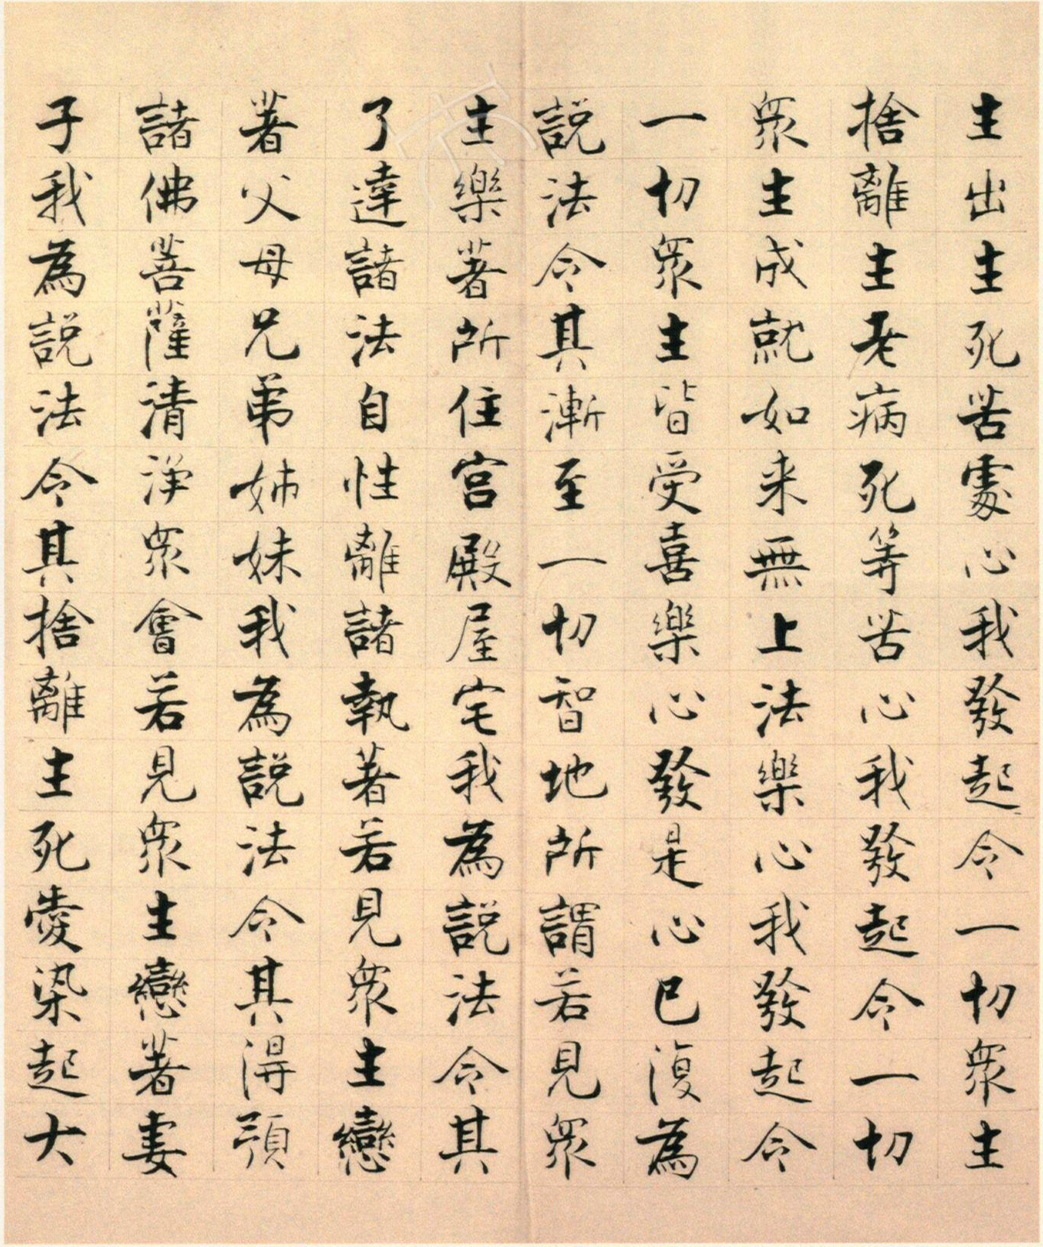 生出生死苦處心我發起令一切眾生
捨離生老病死等苦心我發起令一切
眾生成就如来無上法樂心我發起令
一切眾生皆受喜樂心發是心已復為
説法令其漸至一切智地所謂若見眾
生樂著所住宮殿屋宅我為説法令其
了達諸法自性離諸執著若見眾生戀
著父母兄弟姊妹我為説法令其得預
諸佛菩薩清淨眾會若見眾生戀著妻
子我為説法令其捨離生死愛染起大